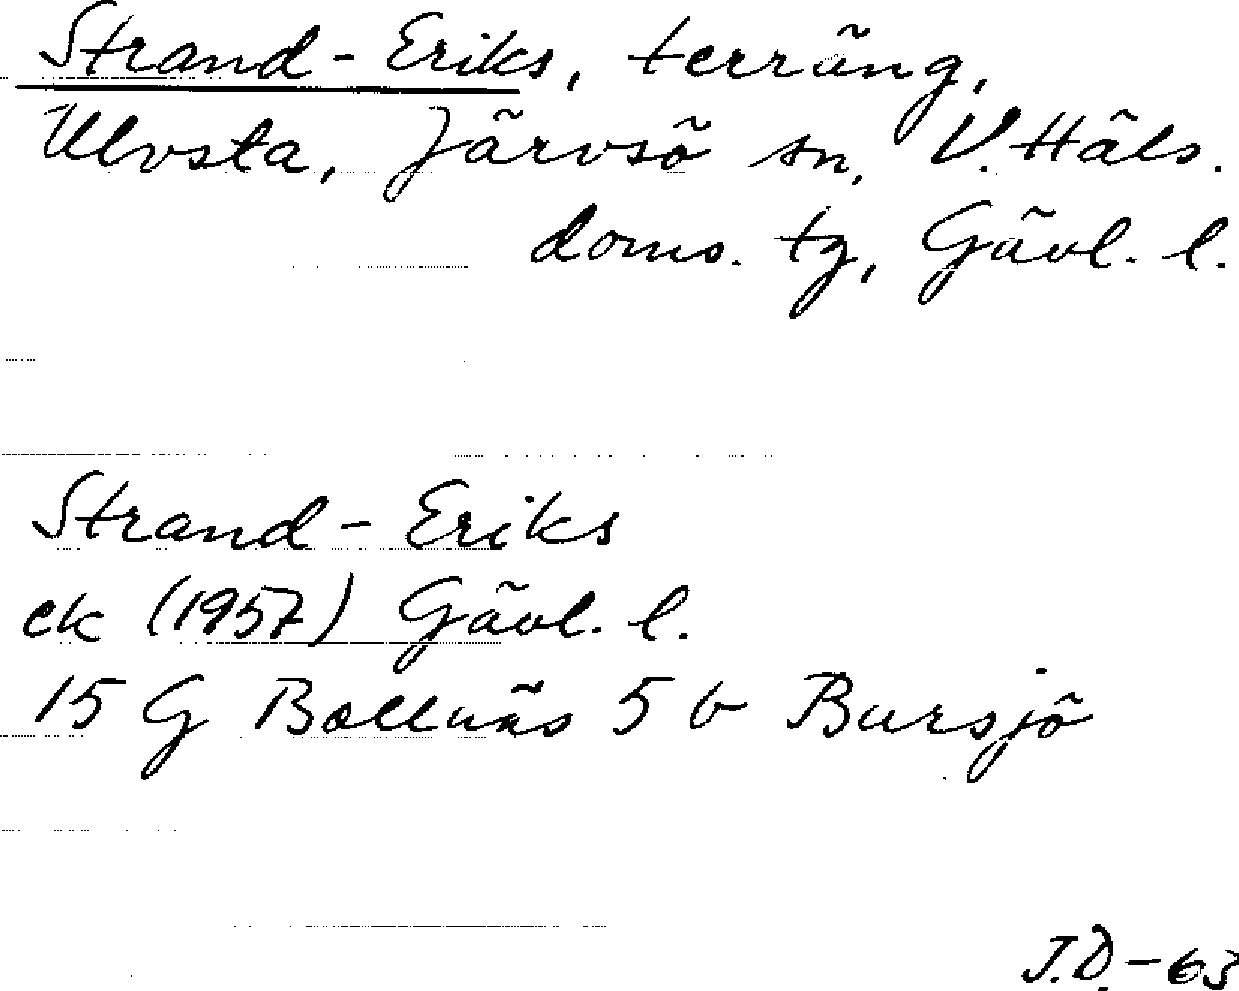 Strand-Eriks, terräng,
Ulvsta, Järvsö sn, V. Häls.
doms. tg, Gävl. l.
Strand-Eriks
ek (1957) Gävl. l.
15 G Bollnäs 5 b Bursjö
J.D.-63